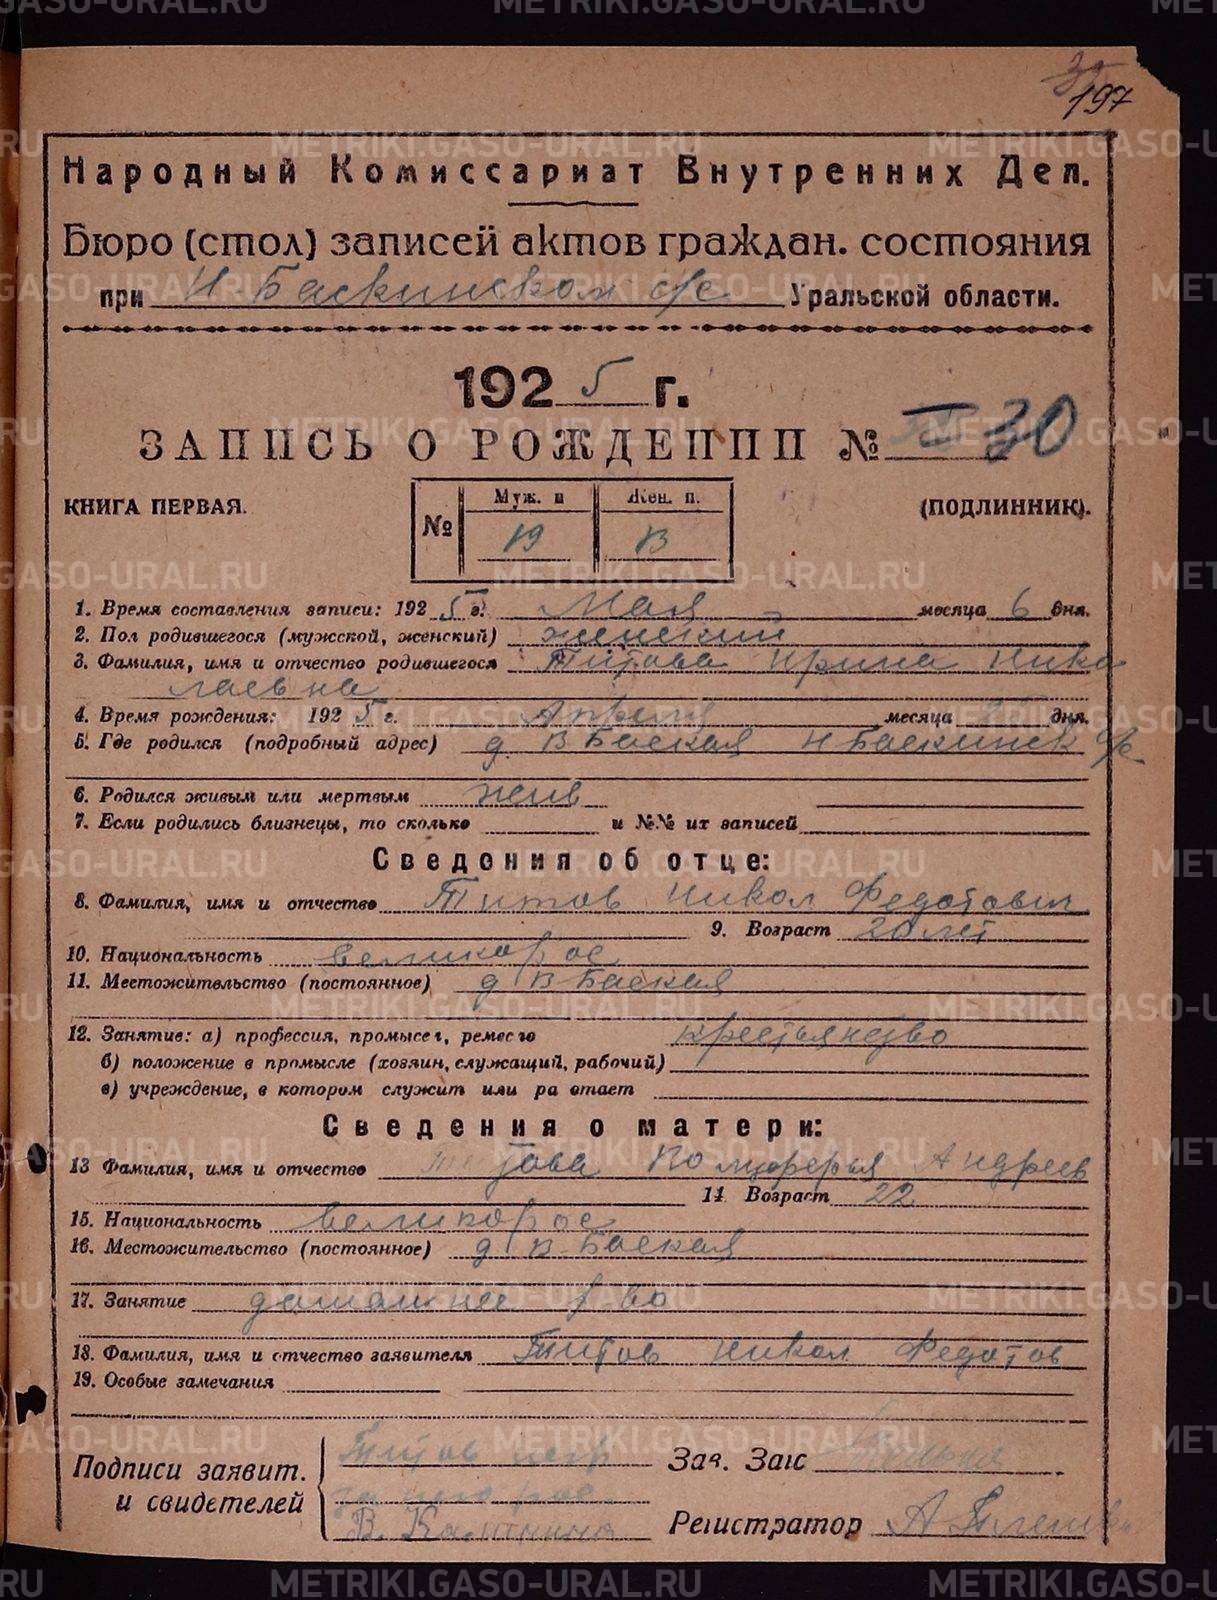 197
Народный Комиссариат Внутренних Дел.
Бюро (стол) записей актов граждан. состояния
при Н-Баскинском с/с Уральской области.
1925 г.
ЗАПИСЬ О РОЖДЕППП № 30
КНИГА ПЕРВАЯ. (ПОДЛИННИК).
№ Муж. п Жен. п.
19 13
1. Время составления записи: 1925 г. Мая месяца 6 дня.
2. Пол родившегося (мужской, женский) женский
3. Фамилия, имя и отчество родившегося Титова Ирина Нико
лаевна
4. Время рождения: 1925 г. Апреля месяца дня.
5. Где родился (подробный адрес) д. В Баская Н Баскинск с/с
6. Родился живым или мертвым жив
7. Если родились близнецы, то сколько и №№ их записей
Сведения об отце:
8. Фамилия, имя и отчество Титов Никол Федотович
9. Возраст 20 лет
10. Национальность великорос
11. Местожительство (постоянное) д В Баская
12. Занятие: а) профессия, промысел, ремесло крестьянство
б) положение в промысле (хозяин, служащий, рабочий)
в) учреждение, в котором служит или ра отает
Сведения о матери:
13 Фамилия, имя и отчество Титова Андреев
14 Возраст 22
15. Национальность великорос
16. Местожительство (постоянное) д В-Баская
17. Занятие домашнее
18. Фамилия, имя и отчество заявителя Титов Никол Федотов
19. Особые замечания
Подписи заявит. и свидетелей Титов
В.
Зав. Загс
Регистратор А
METRIKI.GASO-URAL.RU